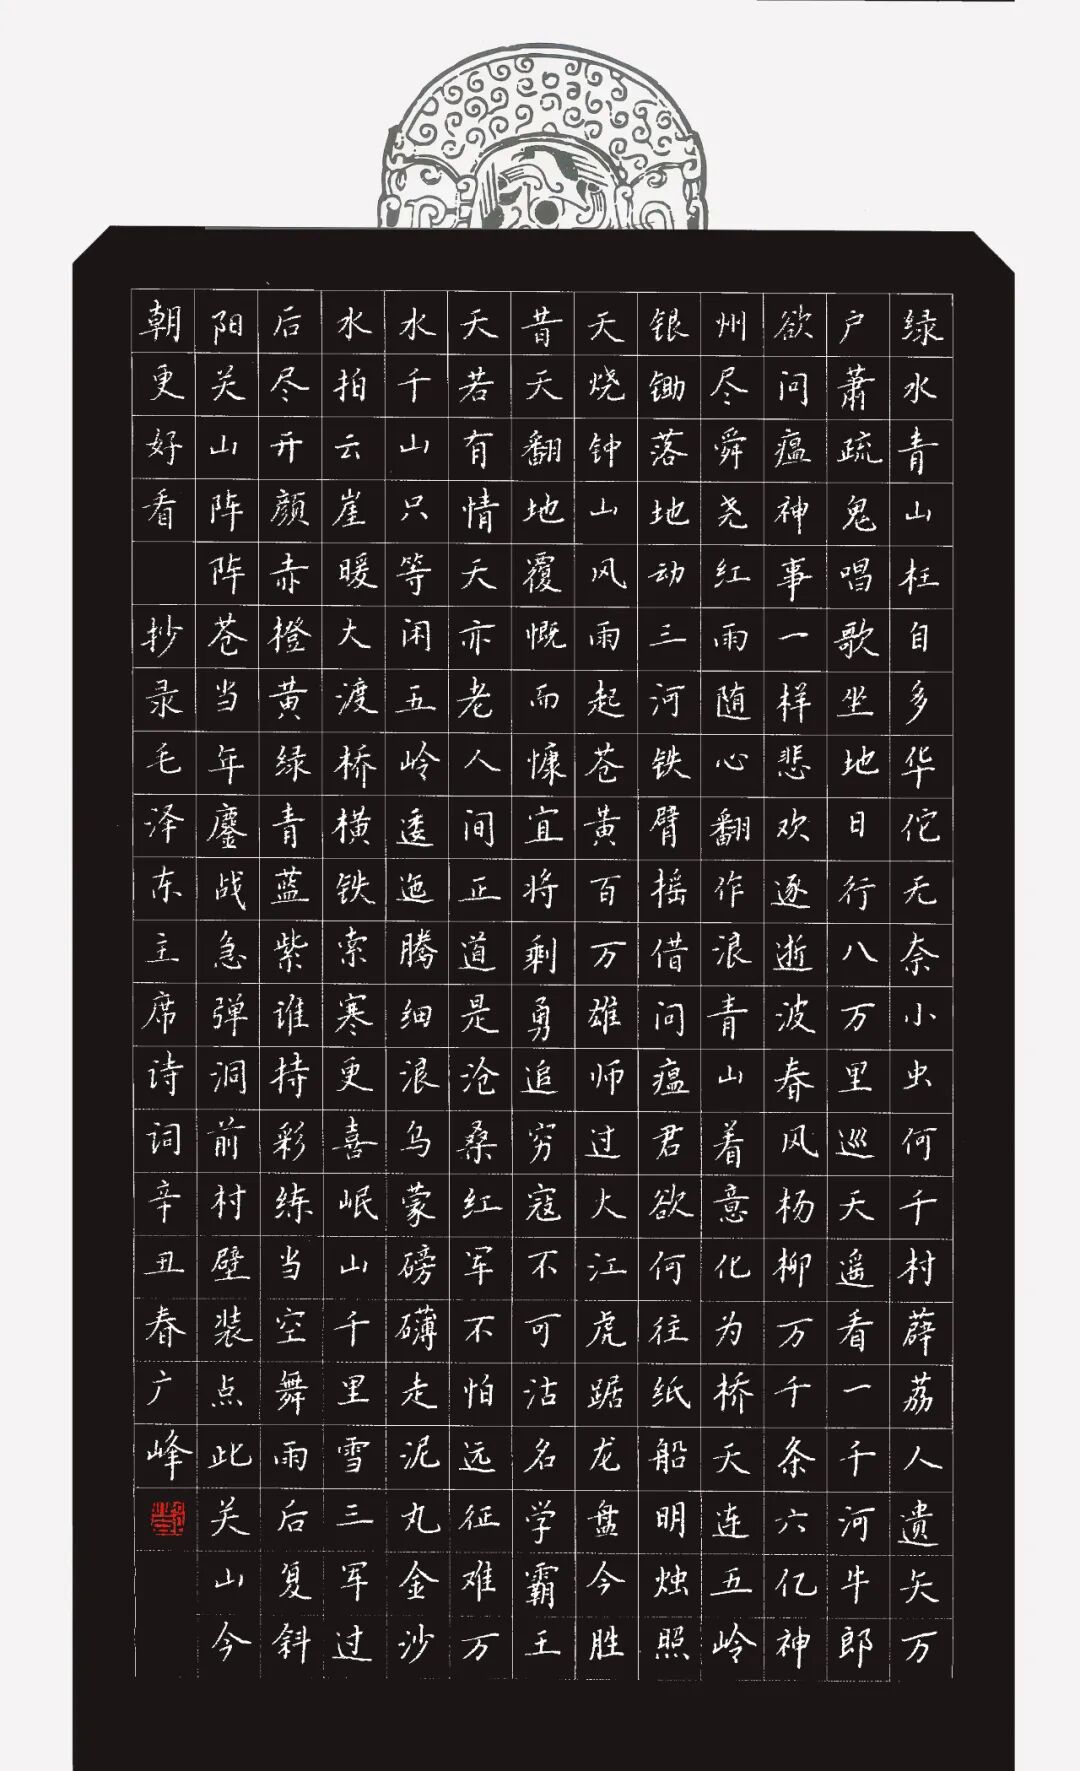 绿水青山枉自多华佗无奈小虫何千村薜荔人遗矢万
户萧疏鬼唱歌坐地日行八万里巡天遥看一千河牛郎
欲问瘟神事一样悲欢逐逝波春风杨柳万千条六亿神
州尽舜尧红雨随心翻作浪青山着意化为桥天连五岭
银锄落地动三河铁臂摇借问瘟君欲何往纸船明烛照
天烧钟山风雨起苍黄百万雄师过火江虎踞龙盘今胜
昔天翻地覆慨而慷宜将剩勇追穷寇不可沽名学霸王
天若有情天亦老人间正道是沧桑红军不怕远征难万
水千山只等闲五岭逶迤腾细浪乌蒙磅礴走泥丸金沙
水拍云崖暖大渡桥横铁索寒更喜岷山千里雪三军过
后尽开颜赤橙黄绿青蓝紫谁持彩练当空舞雨后复斜
阳关山阵阵苍当年鏖战急弹洞前村壁装点此关山今
朝更好看 抄录毛泽东主席诗词辛丑春广峰